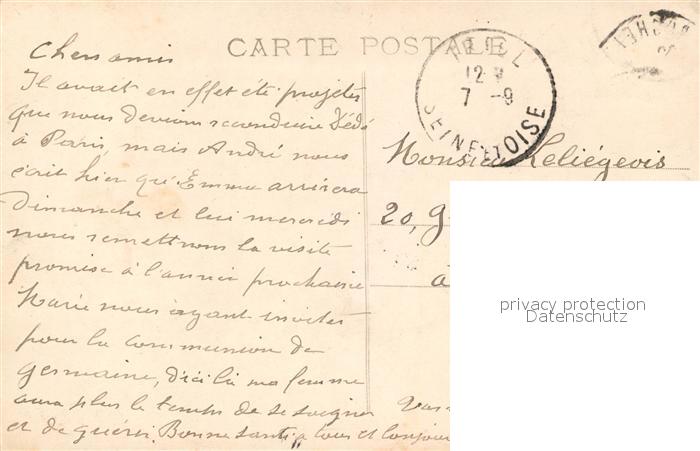 CARTE POSTALE
TRIEL
12
7 -9
SEINE-ET-OISE
Chers amis
Il avait en effet été projeté
que nous devions reconduire Dédé
à Paris, mais André nous
écrit hier qu'Emma arrivera
Dimanche et lui mercredi
nous remettrons la visite
promise à l'année prochaine
Marie nous ayant invités
pour la communion de
Germaine, d'ici là ma femme
aura plus le temps de se soigner
et de guérir. Bonne santé à tous et bonjour
Monsieur Leliégeois
20, G
à
privacy protection
Datenschutz